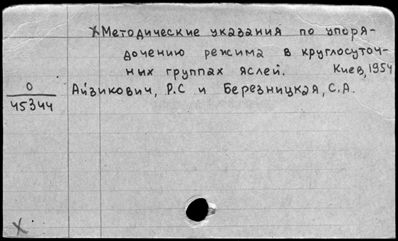 ХМетодические указания по упоря-
дочению режима в круглосуточ-
ных группах яслей. Киев, 1954
О
45344
Айзикович, Р.С и Березницкая, С.А.
Х